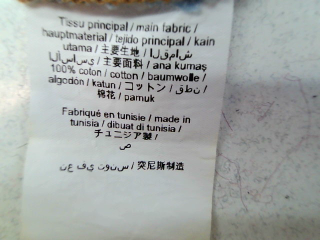 Tissu principal / main fabric /
hauptmaterial / tejido principal / kain
utama / 主要生地 / القماش
الأساسي / 主要面料 / ana kumaş
100% coton / cotton / baumwolle /
algodón / katun / コットン / قطن /
棉花 / pamuk
Fabriqué en tunisie / made in
tunisia / dibuat di tunisia /
チュニジア製 /
ص
نع في تونس / 突尼斯制造